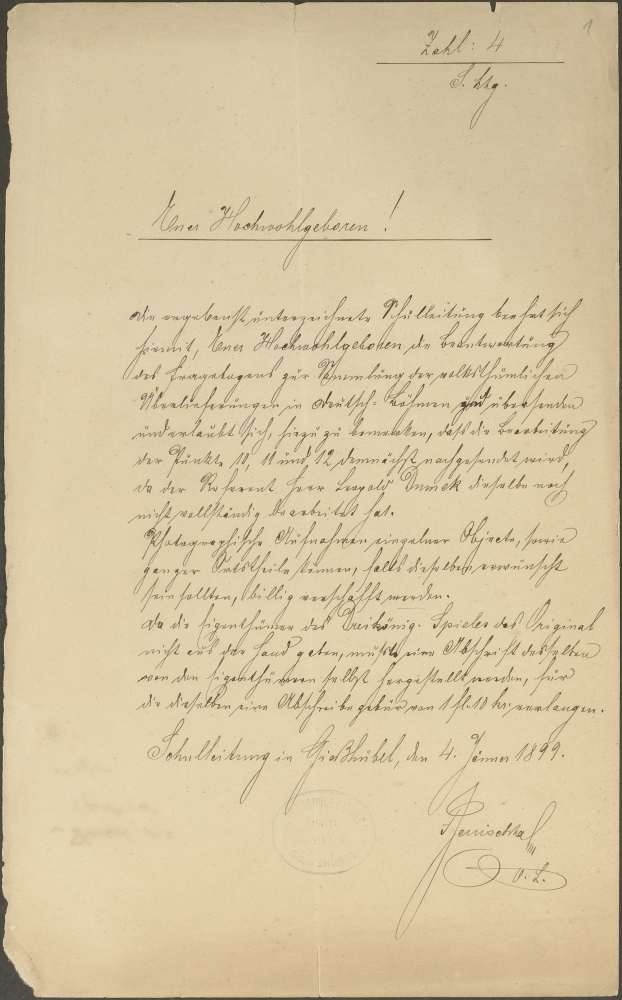 1
Zahl: 4
S. Ltg.
Euer Hochwohlgeboren!
Die ergebenst unterzeichnete Schulleitung beehrt sich
hiemit, Euer Hochwohlgeboren die Beantwortung
des Fragebogens zur Sammlung der volksthümlichen
Überlieferungen in Deutsch-Böhmen zu übersenden
und erlaubt sich, hiezu zu bemerken, daß die Bearbeitung
der Punkte 10, 11 und 12 demnächst nachgesendet wird,
da der Referent Herr Leopold dieselbe noch
nicht vollständig bearbeitet hat.
Photographische Aufnahmen einzelner Objecte, sowie
ganzer Ortstheile können, falls dieselben erwünscht
sein sollten, billig verschafft werden.
Da die Eigenthümer des Dreikönig-Spieles das Original
nicht aus der Hand geben, müßte eine Abschrift desselben
von den Eigenthümern selbst hergestellt werden, für
die dieselben eine Abschreibegebür von 1 fl. 10 kr. verlangen.
Schulleitung in Gießhübel, den 4. Jänner 1899.
O. L.